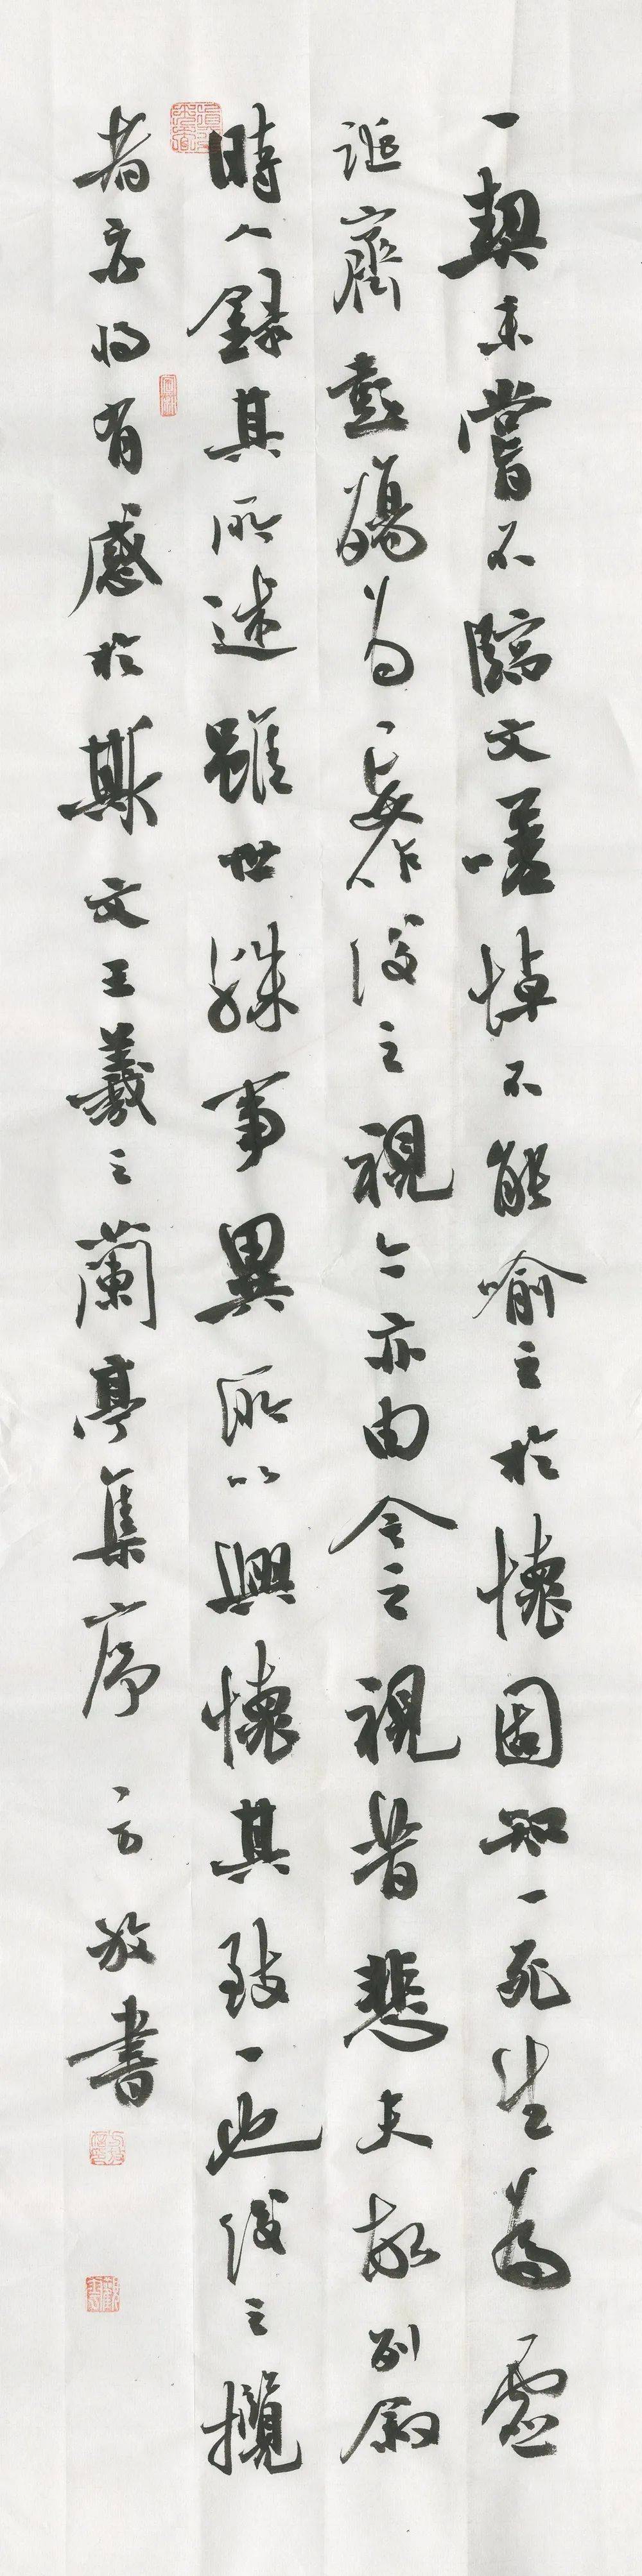 一契未嘗不臨文嗟悼不能喻之於懷固知一死生為虛
誕齊彭殤為妄作後之視今亦由今之視昔悲夫故列敘
時人錄其所述雖世殊事異所以興懷其致一也後之攬
者亦將有感於斯文王羲之蘭亭集序 放書